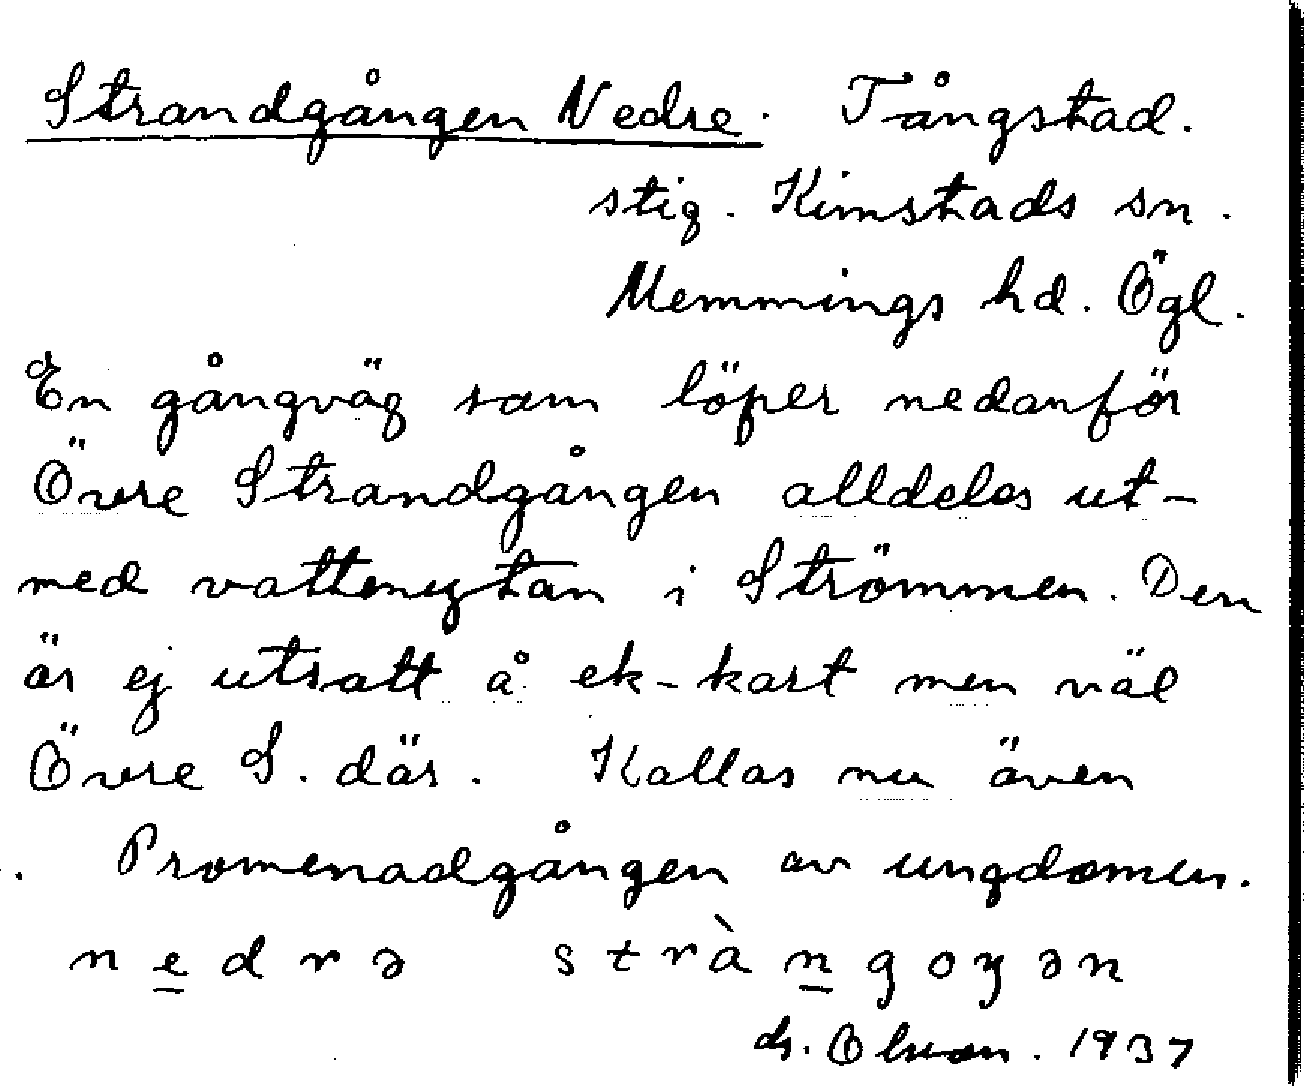 Strandgången Nedre. Tångstad.
stig. Kimstads sn.
Memmings hd. Ögl.
En gångväg som löper nedanför
Övre Strandgången alldeles ut-
med vattenytan i Strömmen. Den
är ej utsatt å ek-kart men väl
Övre S. där. Kallas nu även
Promenadgången av ungdomen.
nedrə stràngoŋən
1937